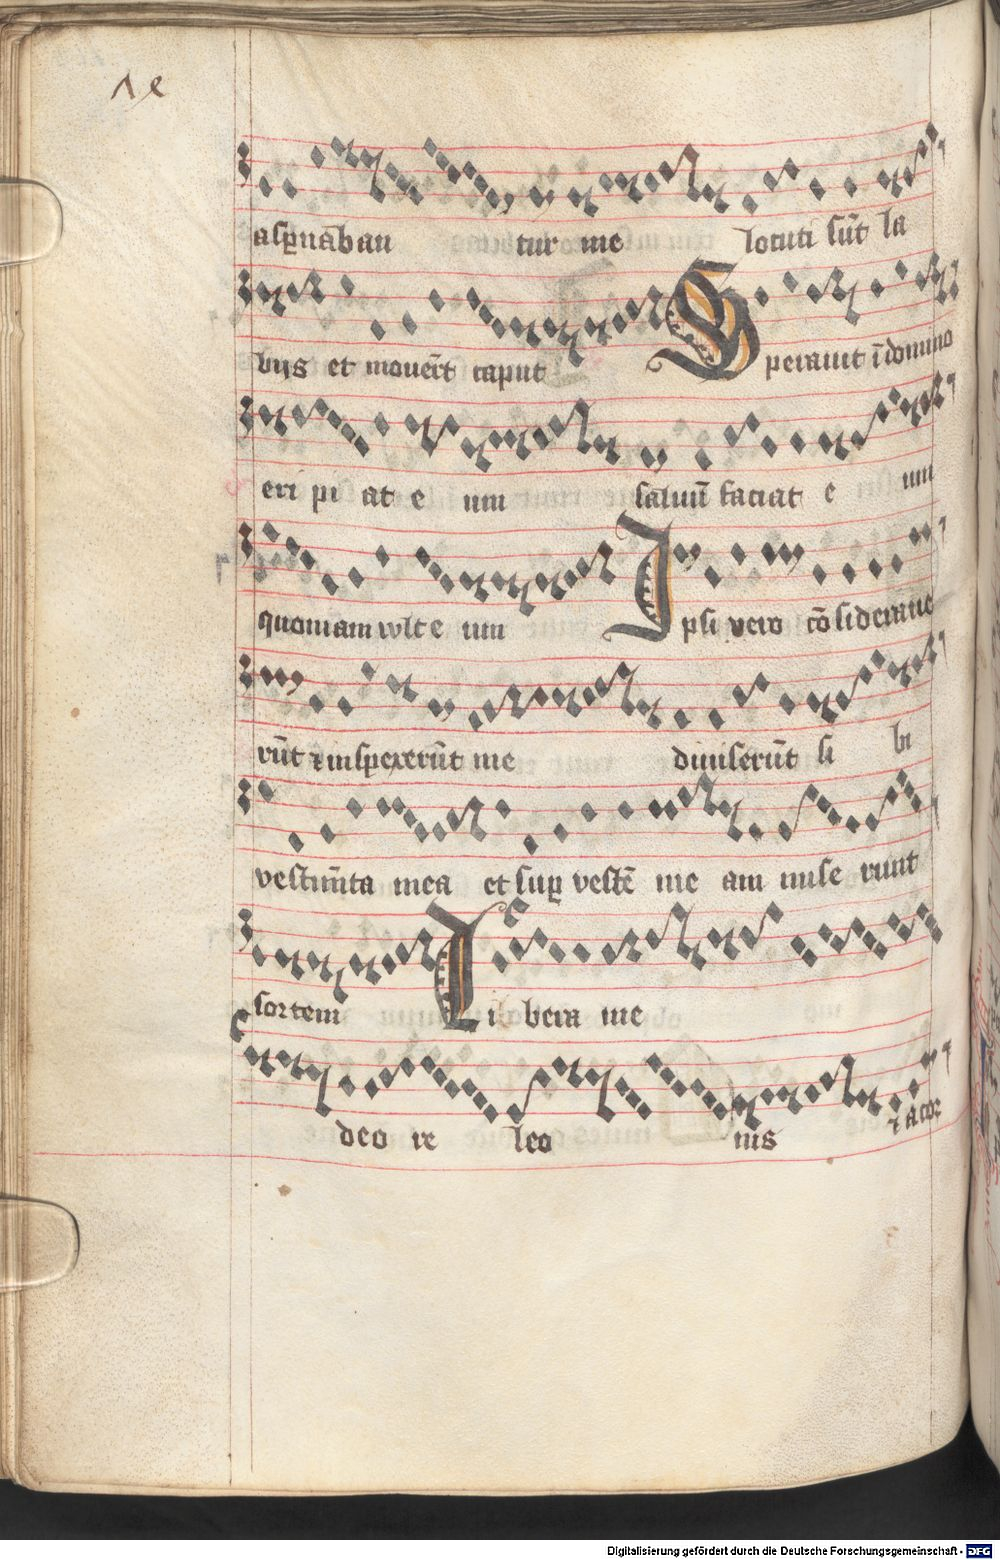 asp̱nāban tur me locuti sūt la
bijs et mouer̄t caput Speravit ī domino
eri pi at e um saluū faciat e um
quoniam vvlt e um Ipsi vero cō siderave
rūt ⁊ inspexerūt me diuiserūt si bi
vestim̄ta mea et sup̱ vestē me am mise runt
sortem Li bera me
de o re leo nis ⁊ a cor
Digitalisierung gefördert durch die Deutsche Forschungsgemeinschaft - DFG